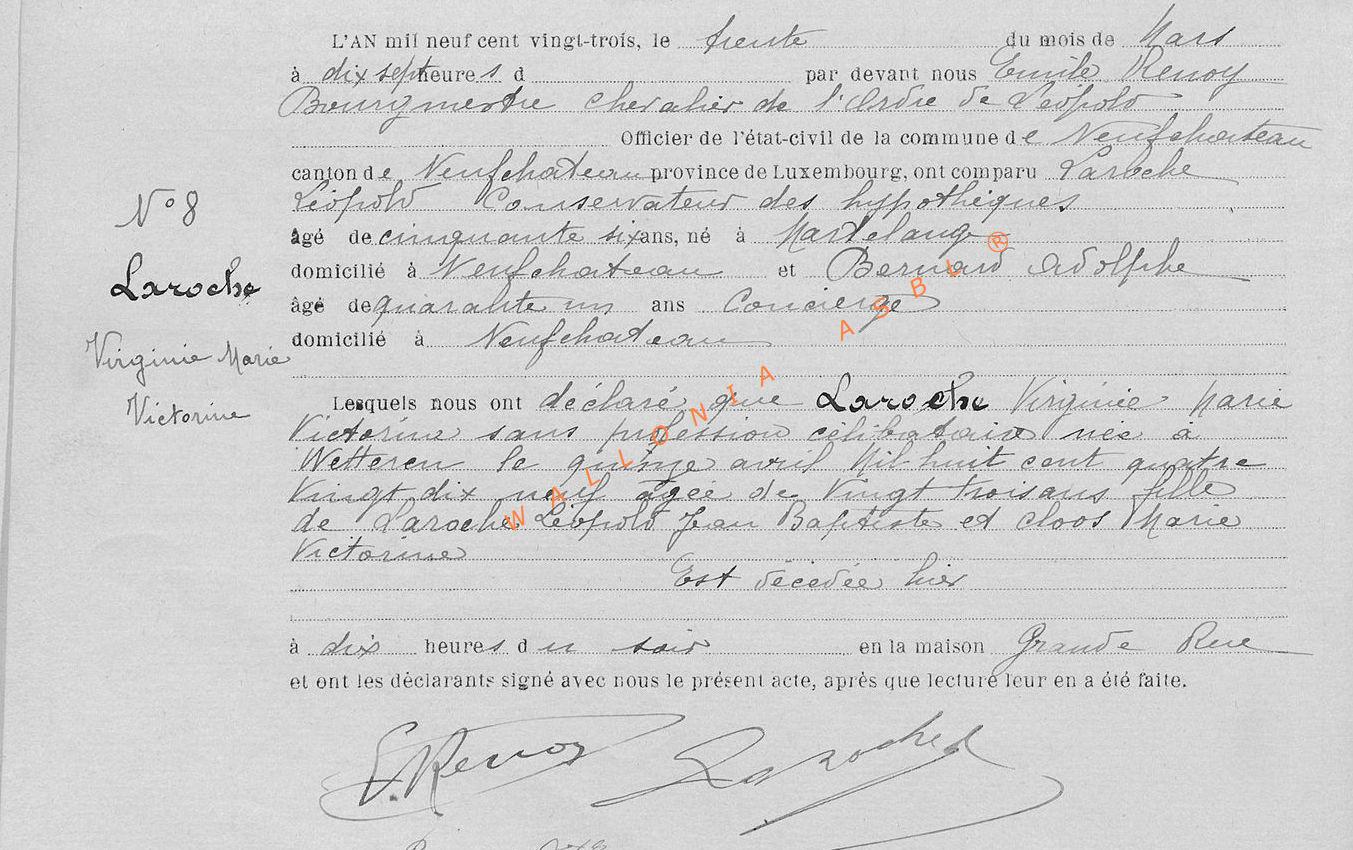 L'AN mil neuf cent vingt-trois, le trente du mois de Mars
à dix sept heures d par devant nous Emile Renoy
Bourgmestre chevalier de l'Ordre de Léopold
Officier de l'état-civil de la commune de Neufchateau
canton de Neufchateau province de Luxembourg, ont comparu Laroche
Léopold Conservateur des hypothèques
âgé de cinquante six ans, né à Martelange
domicilié à Neufchateau et Bernard Adolphe
âgé de quarante un ans Concierge
domicilié à Neufchateau
N° 8
Laroche
Virginie Marie
Victorine
Lesquels nous ont déclaré que Laroche Virginie Marie
Victorine sans profession célibataire née à
Wetteren le quinze avril Mil huit cent quatre
Vingt dix neuf agée de Vingt trois ans fille
de Laroche Léopold Jean Baptiste et Cloos Marie
Victorine
Est décédée hier
à dix heures du soir en la maison Grande Rue
et ont les déclarants signé avec nous le présent acte, après que lecture leur en a été faite.
E. Renoy Laroche
WALLONIA ASBL ®